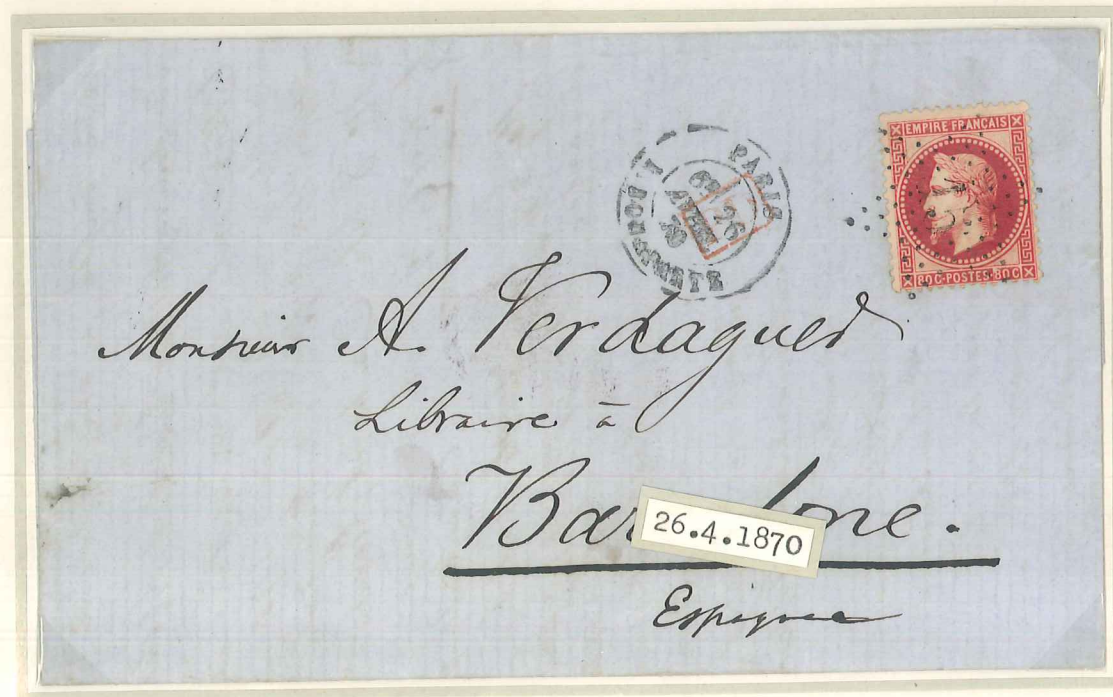 PARIS
26
AVRIL
70
EMPIRE FRANCAIS
80C·POSTES·80C
Monsieur A. Verdaguer
Libraire à
Bar lone.
26.4.1870
Espagne